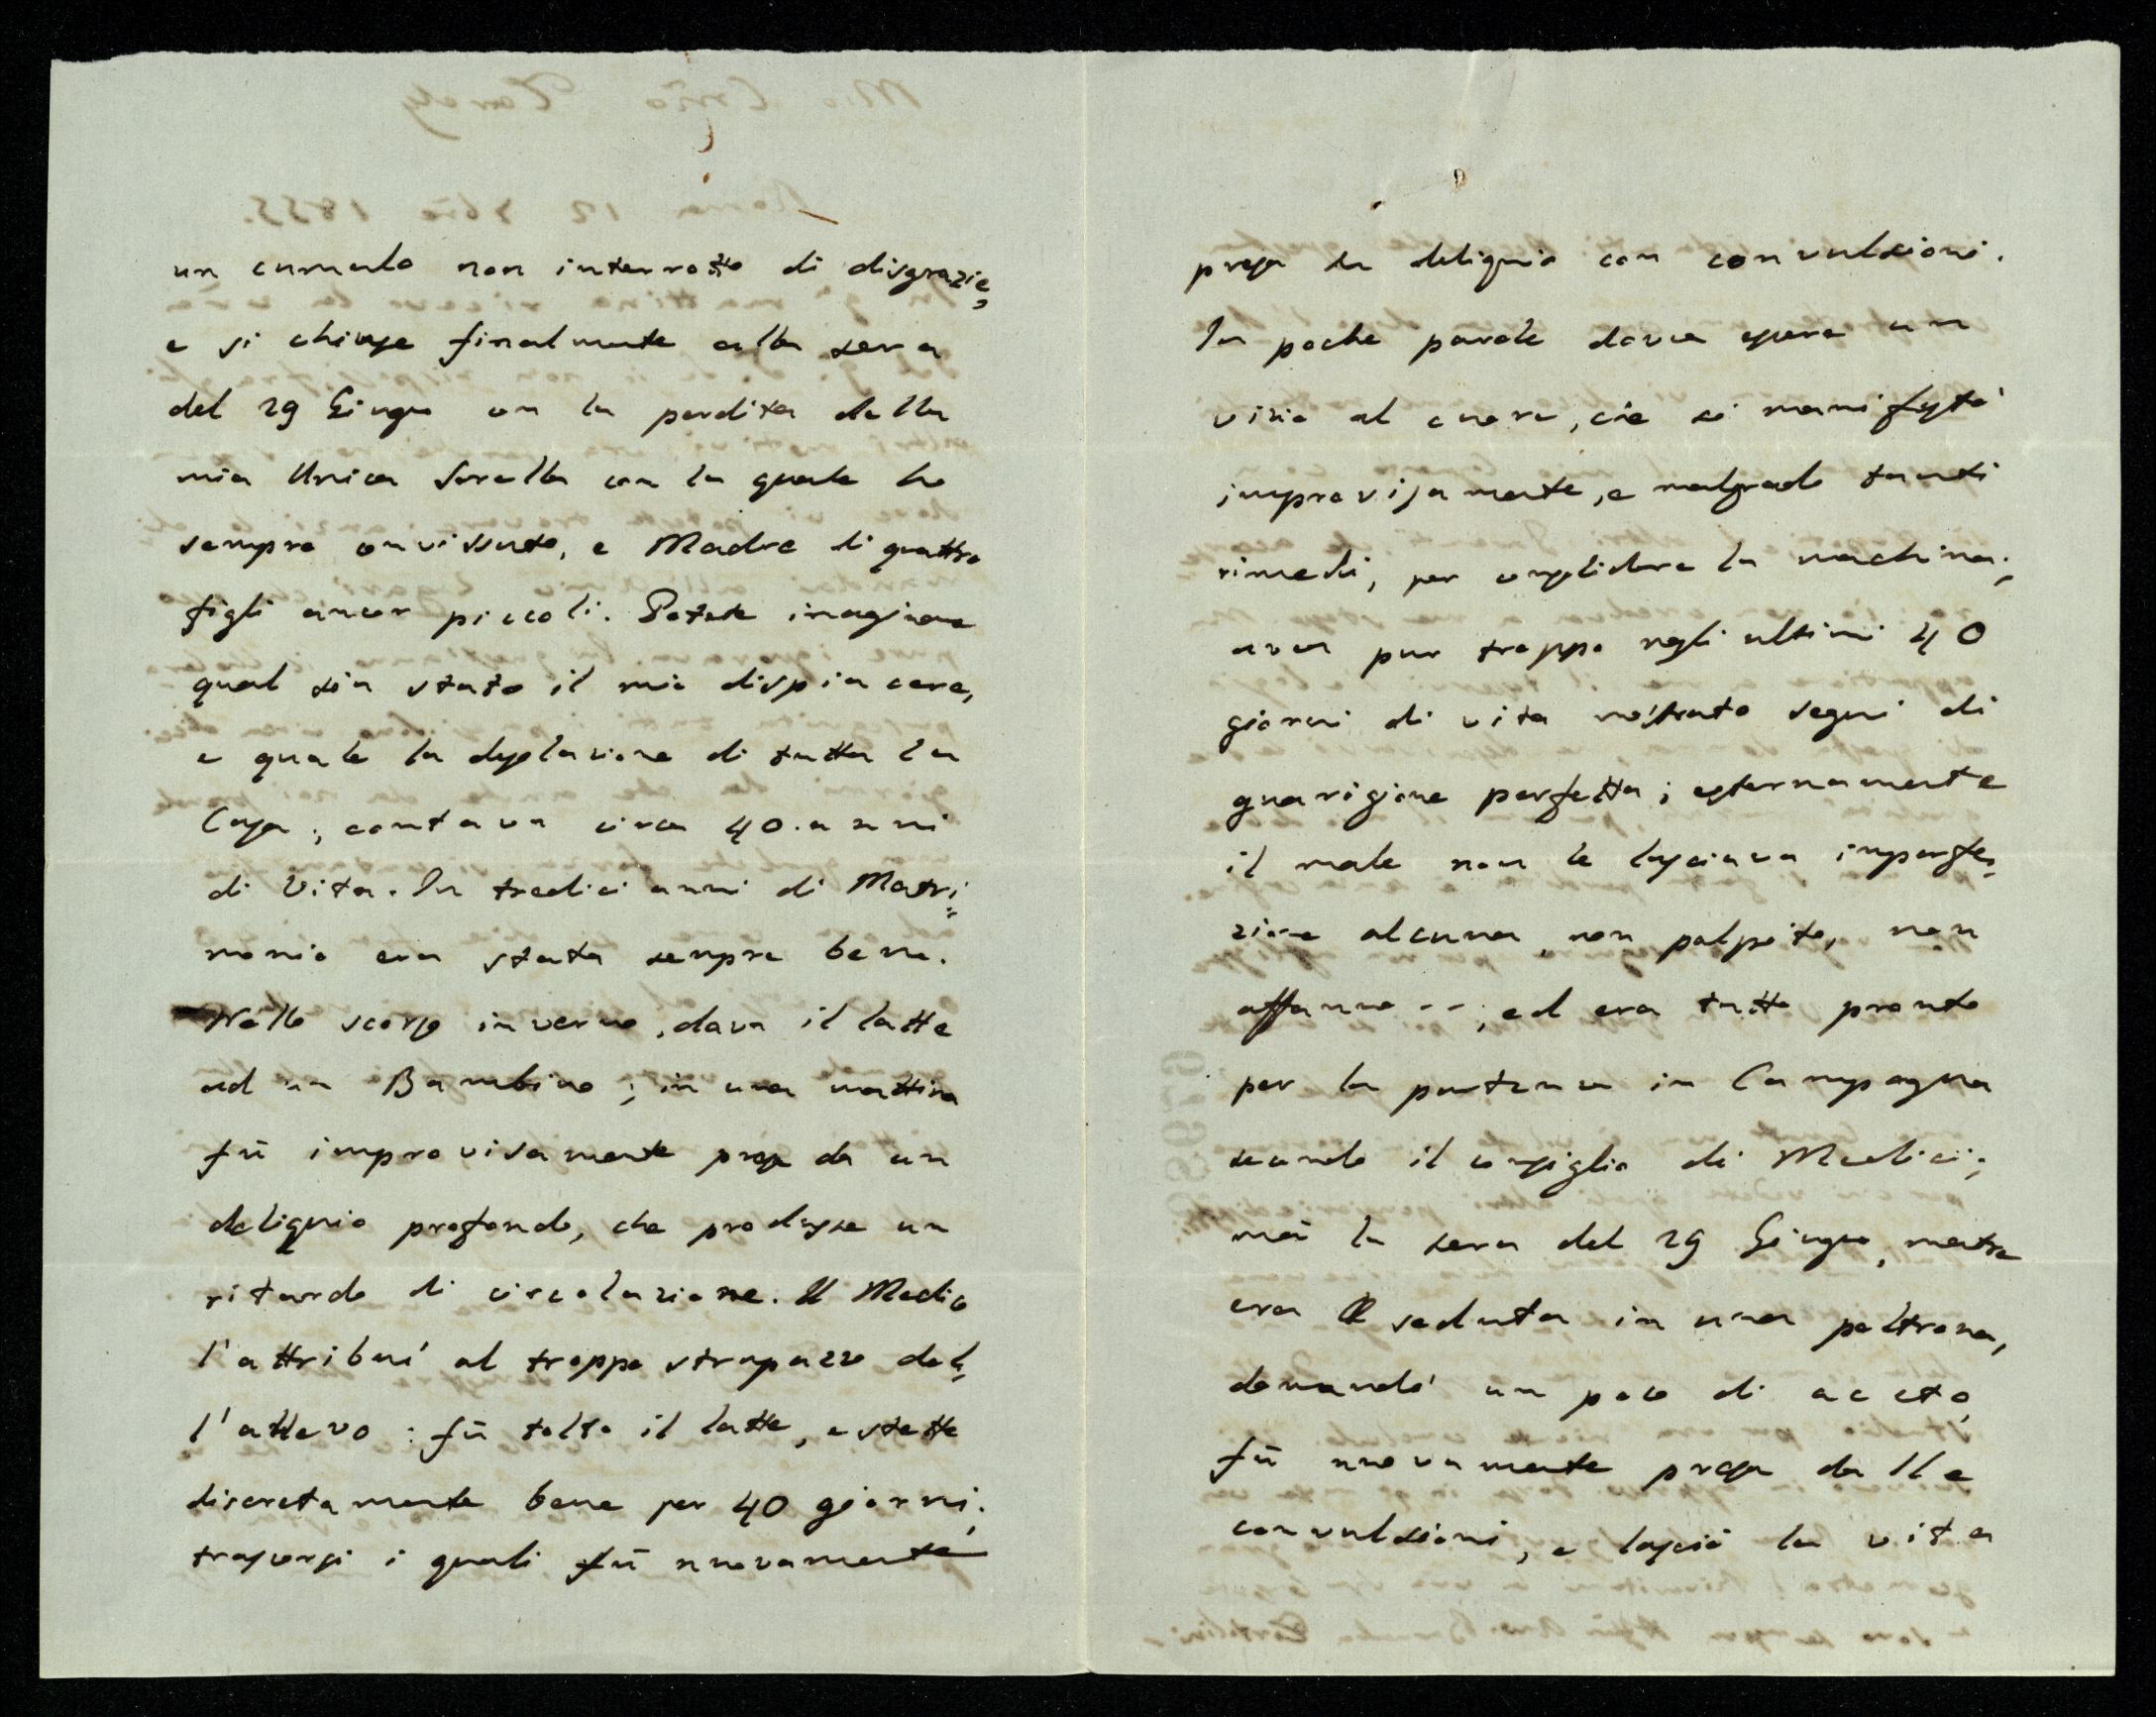 un cumulo non interrotto di disgrazie,
e si chiuse finalmente alla sera
del 29 Giugno con la perdita della
mia Unica Sorella con la quale ho
sempre convissuto, e Madre di quattro
figli ancor piccoli. Potete imaginare
qual sia stato il mio dispiacere,
e quale la desolazione di tutta la
Casa; contava circa 40. anni
di Vita. In tredici anni di Matri=
monio era stata sempre bene.
Nello scorso inverno, dava il latte
ad un Bambino; in una mattina
fù improvisamente presa da un
deliquio profondo, che produsse un
ritardo di circolazione. Il Medico
l'attribuì al troppo strapazzo del=
l'allevo: fù tolto il latte, e stette
discretamente bene per 40 giorni;
trascorsi i quali fù nuovamente
presa da deliquio con convulsioni.
In poche parole dovea essere un
vizio al cuore, che si manifestò
improvisamente, e malgrado tanti
rimedi, per consolidare la machina;
avea pur troppo negli ultimi 40
giorni di vita mostrato segni di
guarigione perfetta; esternamente
il male non le lasciava imperfe=
zione alcuna, non palpito, non
affanno --; ed era tutto pronto
per la partenza in Campagna
secondo il consiglio di Medici;
mà la sera del 29 Giugno, mentre
era seduta in una poltrona,
domandò un poco di aceto,
fù nuovamente presa dalle
convulsioni, e lasciò la vita